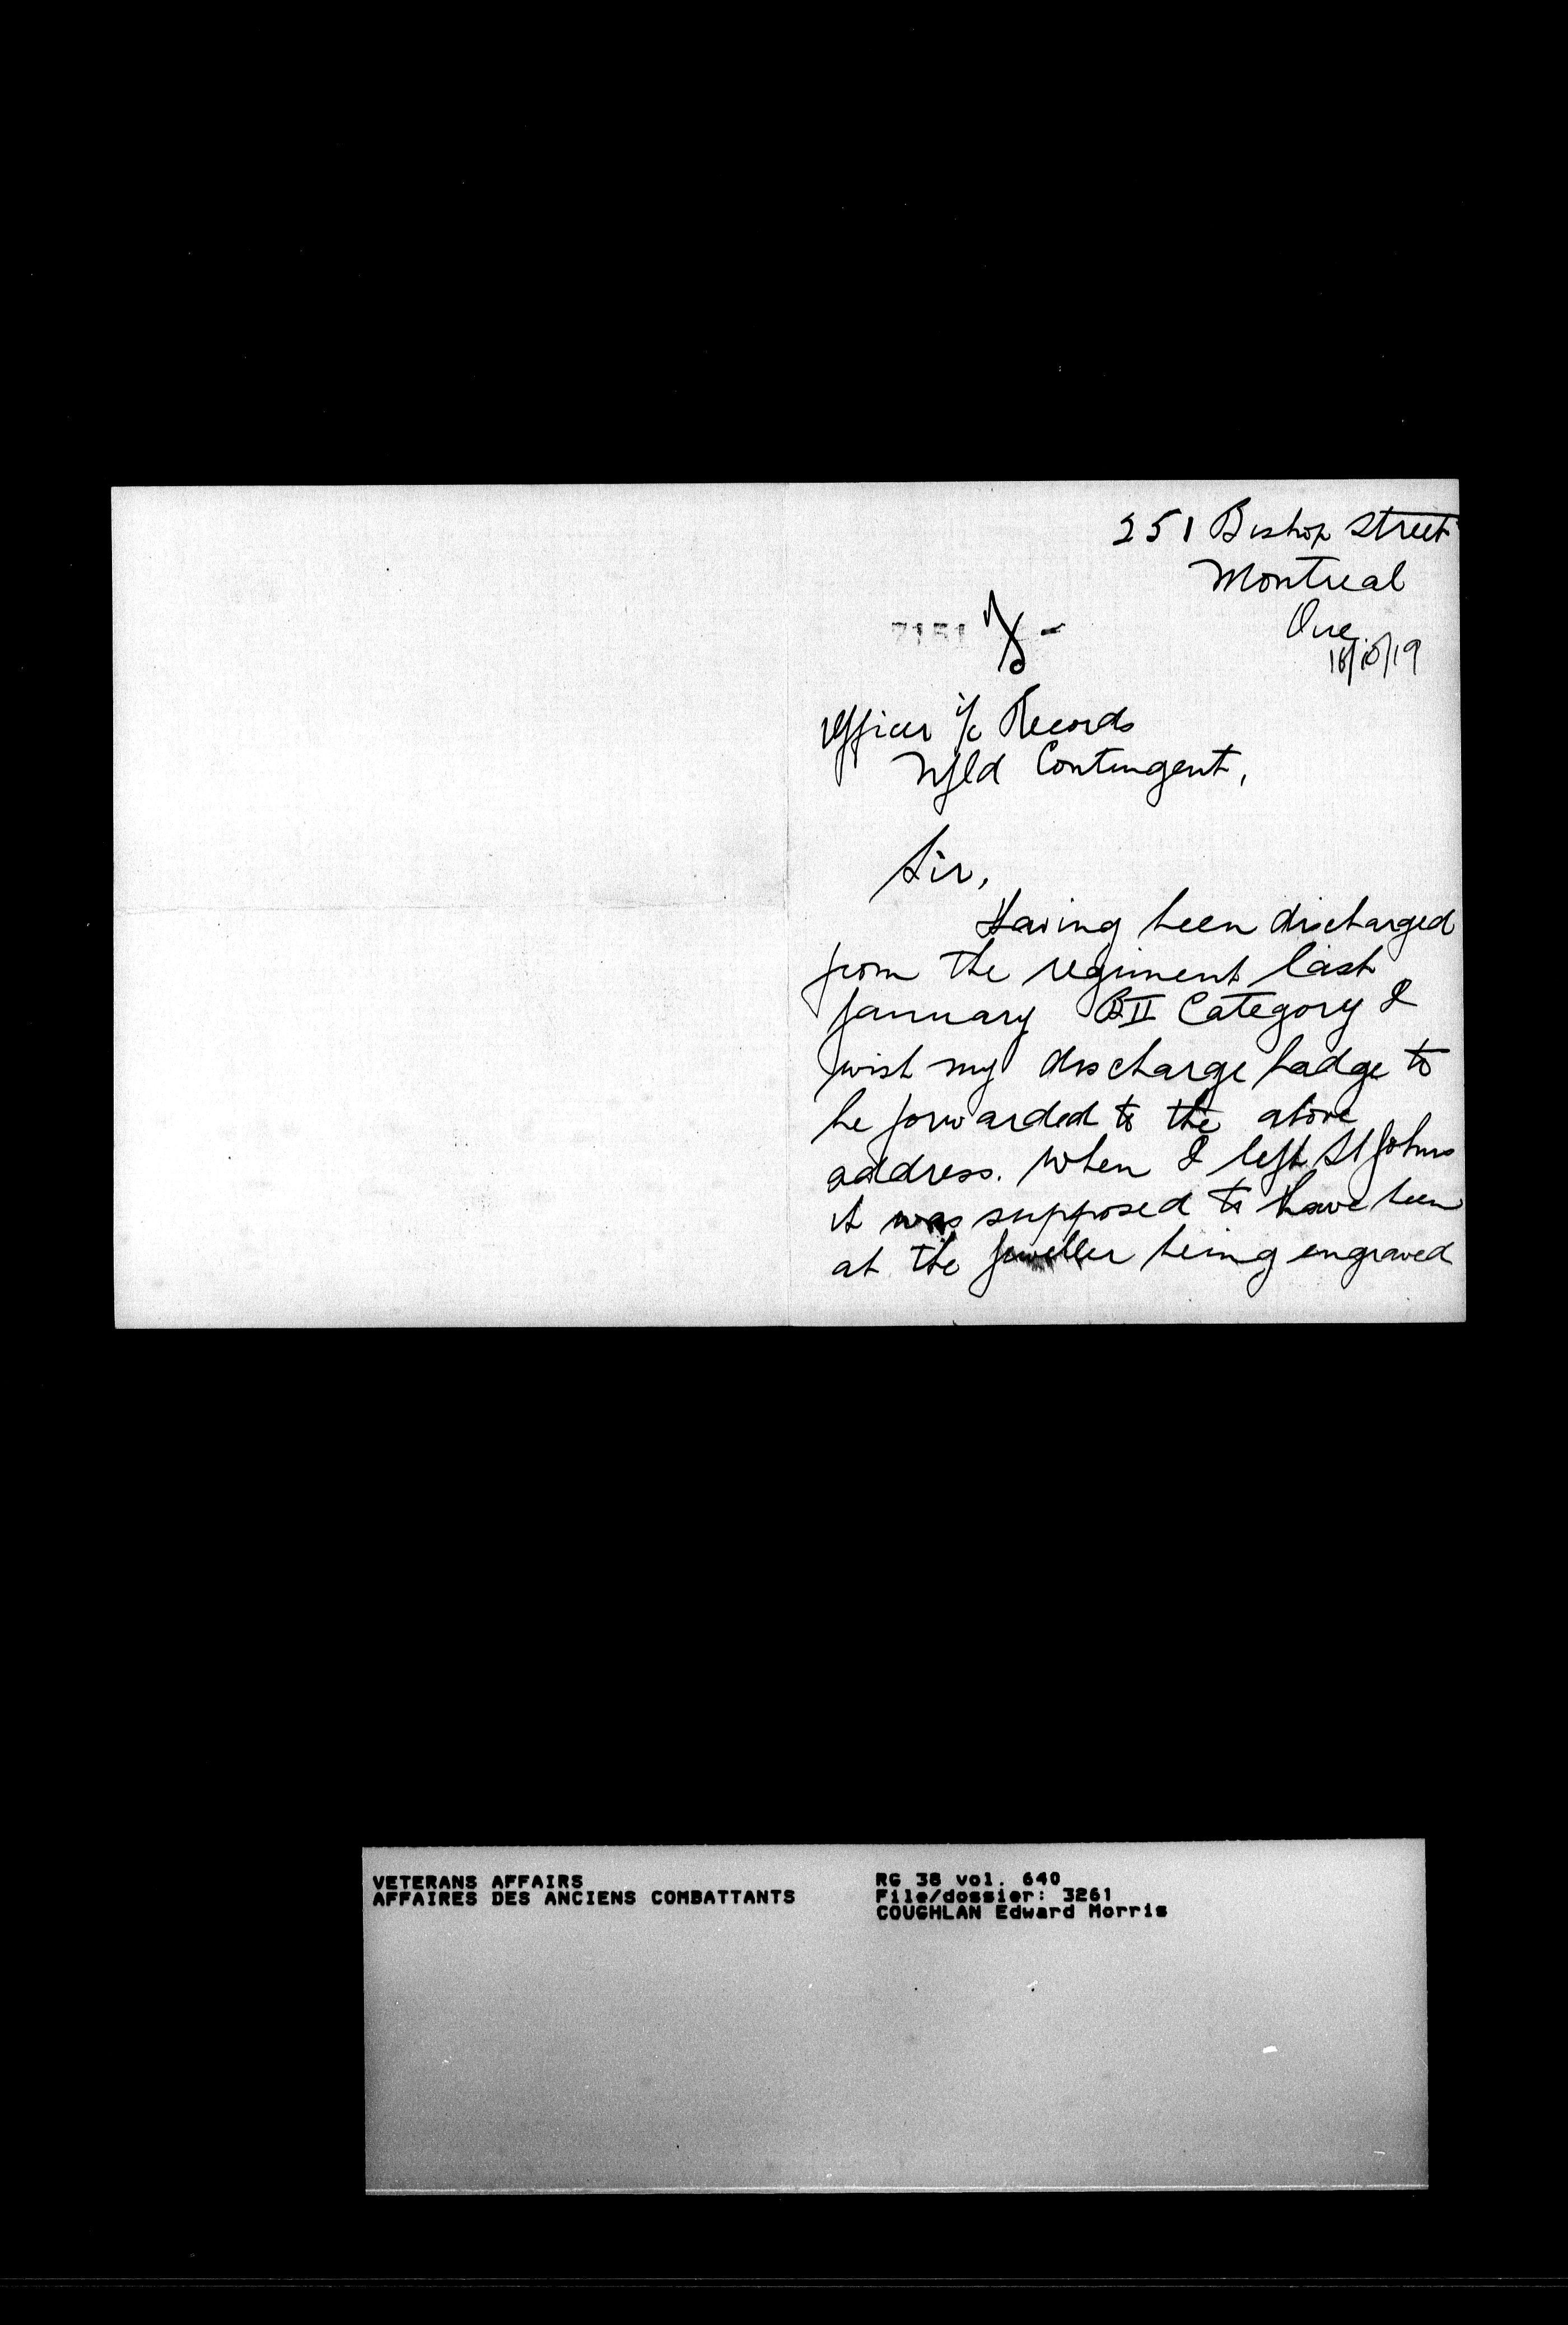 251 Bishop Street
Montreal
Que.
7151
Officer i/c Records
Nfld Contingent,
Sir,
Having been discharged
from the regiment last
January BII Category I
wish my discharge badge to
be forwarded to the above
address. When I left St Johns
it was supposed to have been
at the Jeweller being engraved
VETERANS AFFAIRS
AFFAIRES DES ANCIENS COMBATTANTS
RG 38 vol. 640
File/dossier: 3261
COUGHLAN Edward Morris